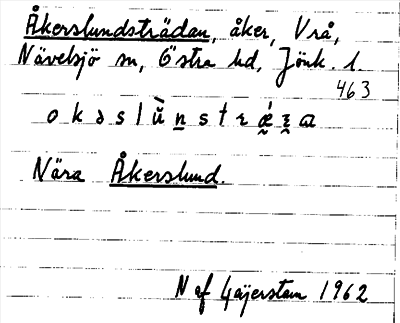 Åkerslundsträdan, åker, Vrå,
Nävelsjö sn, Östra hd, Jönk. l.
463
o k ə s l ŭ̀ n s t ɛ ǽ ɛ a
Nära Åkerslund.
N af 1962